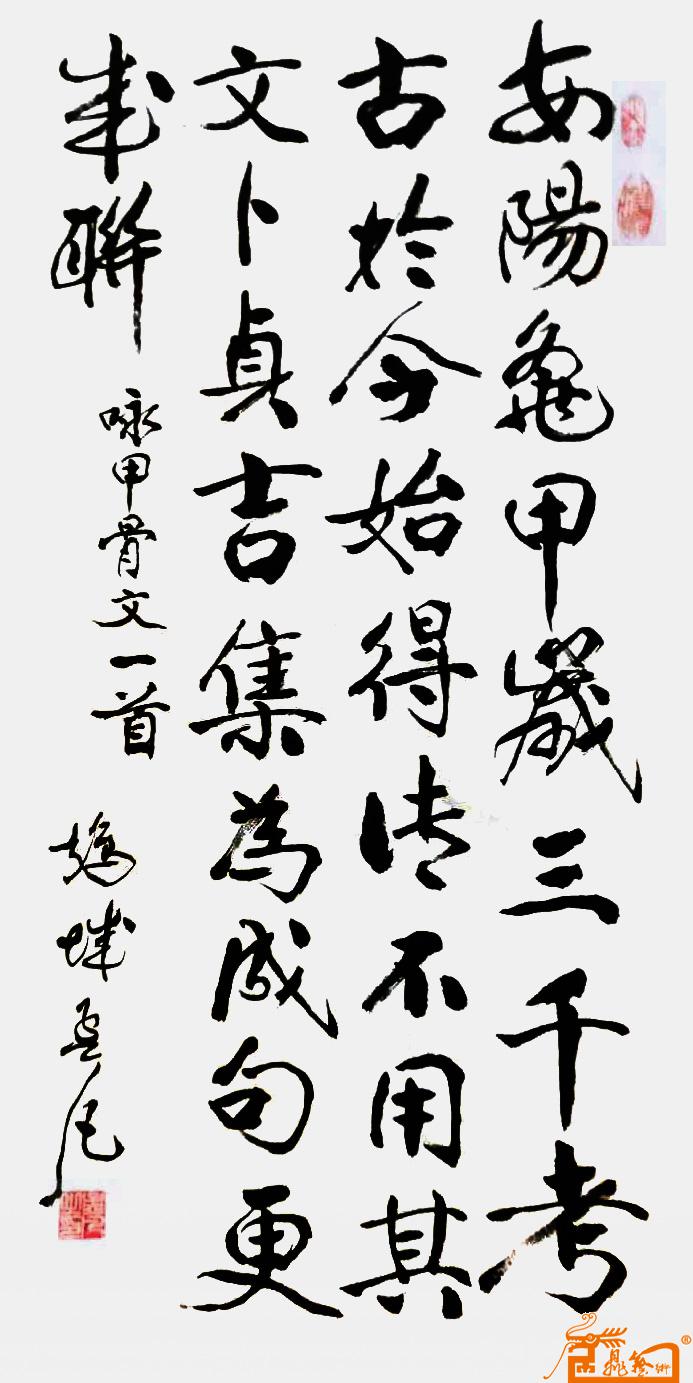 安陽龜甲歲三千考
古於今始得传不用其
文卜貞吉集為成句更
成聯
咏甲骨文一首
城